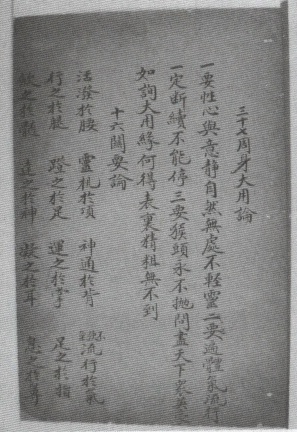 三十七周身大用論
一要性心與意靜自然無處不輕靈二要遍體氣流行
一定斷續不能停三要猴頭永不拋問盡天下衆英
如詢大用緣何得表裏精粗無不到
十六關要論
活潑於腰 靈機於項 神通於背 流行於氣
行之於腿 蹬之於足 運之於掌 足之於指
斂之於髓 達之於神 凝之於耳 息之於鼻